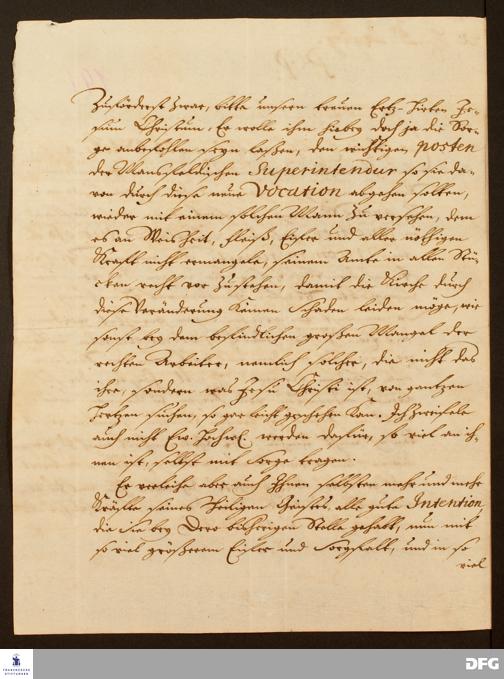 Zuförderst zwar, bitte unsern treuen Ertz-Hirten Je-
sum Christum, Er wolle ihm hiebey doch ja die Sor-
ge anbefohlen seyn laßen, den wichtigen posten
der Mansfeldischen Superintendur so sie da-
von durch diese neue Vocation abgehen solten,
wieder mit einem solchen Mann zu versehen, dem
es an Weisheit, fleiß, Eifer und aller nöthigen
Krafft nicht ermangele, seinem Amte in allen Stü-
cken recht vor zustehen, damit die Kirche durch
diese Veränderung keinen Schaden leiden möge, wie
sonst bey dem befindlichen großen Mangel der
rechten Arbeiter, nemlich solcher, die nicht das
ihre, sondern was Jesu Christi ist, von gantzen
Hertzen suchen, so gar leicht geschehen kan. Ich zweifele
auch nicht Ew. Hochw. werden dafür, so viel an ih-
nen ist, selbst mit Sorge tragen.
Er verleihe aber auch Ihnen selbsten mehr und mehr
Kräfte seines Heiligen Geistes, alle gute Intention,
die Sie bey Dero bisherigen Stelle gehabt, nun mit
so viel größerem Eifer und Sorgfalt, und in so
viel
FRANCKESCHE
STIFTUNGEN
DFG